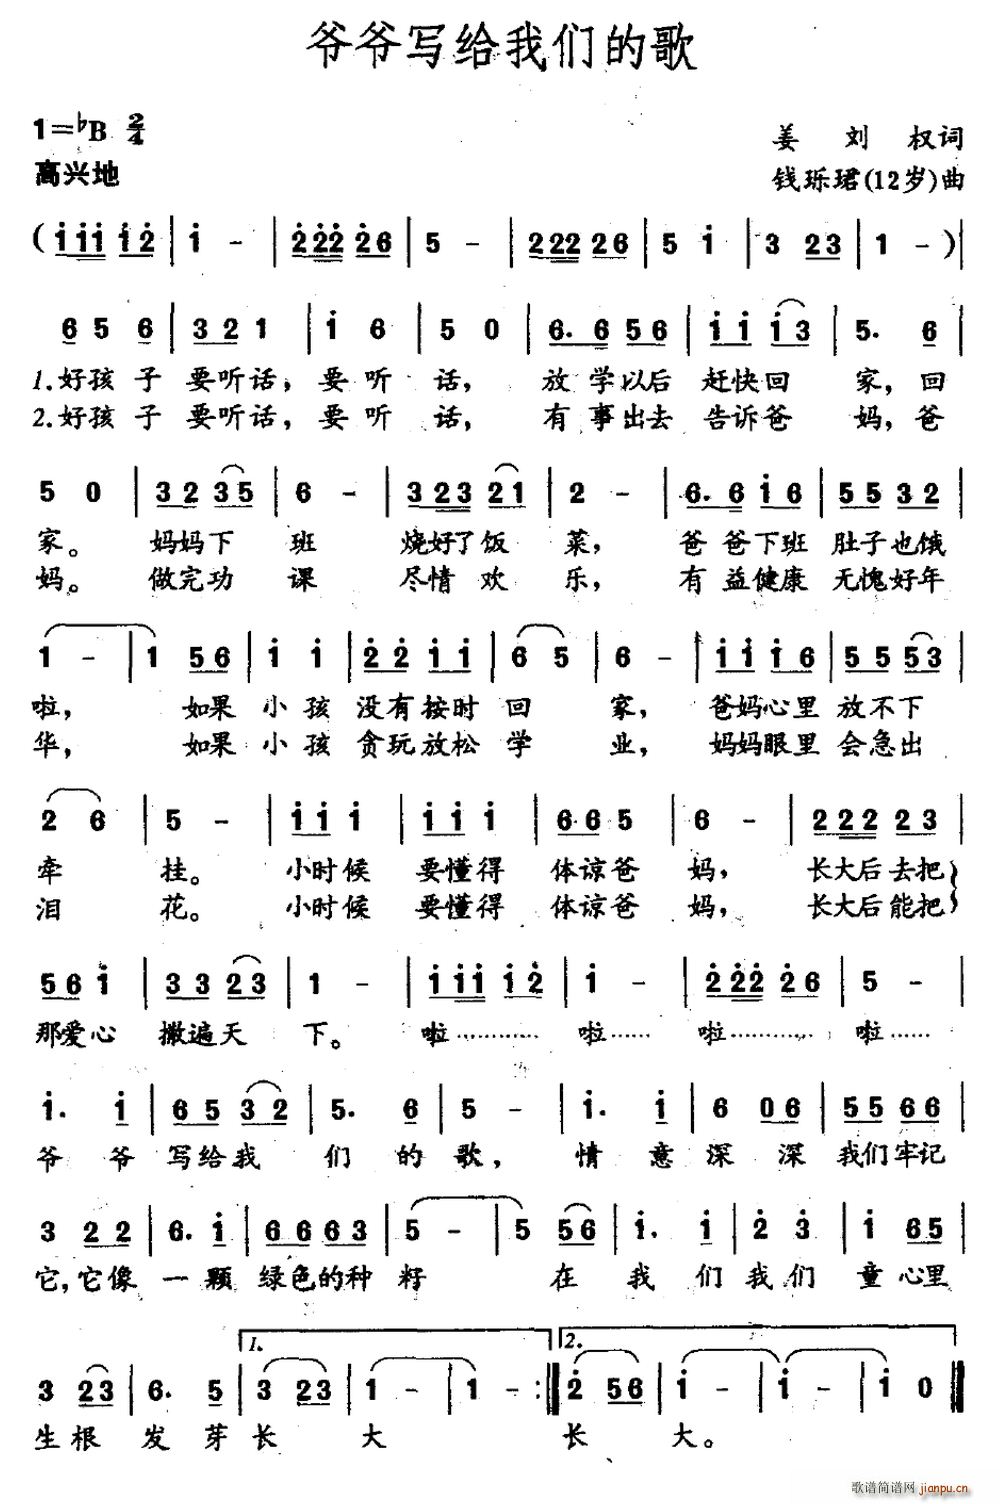 爷爷写给我们的歌
1=♭B 2/4
姜 刘 权词
高兴地
钱珎珺(12岁)曲
( i i i i 2 | i - | 2 2 2 2 6 | 5 - | 2 2 2 2 6 | 5 i | 3 2 3 | 1 - )|
6 5 6 | 3 2 1 | i 6 | 5 0 | 6. 6 5 6 | i i i 3 | 5. 6 |
1.好孩子 要听话, 要听 话, 放学以后 赶快回 家, 回
2.好孩子 要听话, 要听 话, 有事出去 告诉爸 妈, 爸
5 0 | 3 2 3 5 | 6 - | 3 2 3 2 1 | 2 - | 6. 6 i 6 | 5 5 3 2 |
家。 妈妈下 班 烧好了饭 菜, 爸爸下班 肚子也饿
妈。 做完功 课 尽情欢 乐, 有益健康 无愧好年
1 - | 1 5 6 | i i | 2 2 i i | 6 5 | 6 - | i i i 6 | 5 5 5 3 |
啦, 如果 小孩 没有按时 回 家, 爸妈心里 放不下
华, 如果 小孩 贪玩放松 学 业, 妈妈眼里 会急出
2 6 | 5 - | i i i | i i i | 6 6 5 | 6 - | 2 2 2 2 3 |
牵 挂。 小时候 要懂得 体谅爸 妈, 长大后去把
泪 花。 小时候 要懂得 体谅爸 妈, 长大后能把
5 6 i | 3 3 2 3 | 1 - | i i i i 2 | i - | 2 2 2 2 6 | 5 - |
那爱心 撒遍天 下。 啦………… 啦…… 啦………… 啦……
i. i | 6 5 3 2 | 5. 6 | 5 - | i. i | 6 0 6 | 5 5 6 6 |
爷 爷 写给我 们 的 歌, 情 意 深 深 我们牢记
3 2 2 | 6. i | 6 6 6 3 | 5 - | 5 5 6 | i. i | 2 3 | i 6 5 |
它,它像 一 颗 绿色的种 籽 在 我 们 我 们 童 心里
1. 2.
3 2 3 | 6. 5 | 3 2 3 | 1 - | 1 - :‖ 2 5 6 | i - | i - | i 0 ‖
生根 发 芽 长 大 长 大。
歌谱简谱网 jianpu.cn